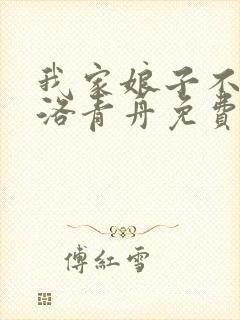 我家娘子不
洛青丹免費
傅紅雪